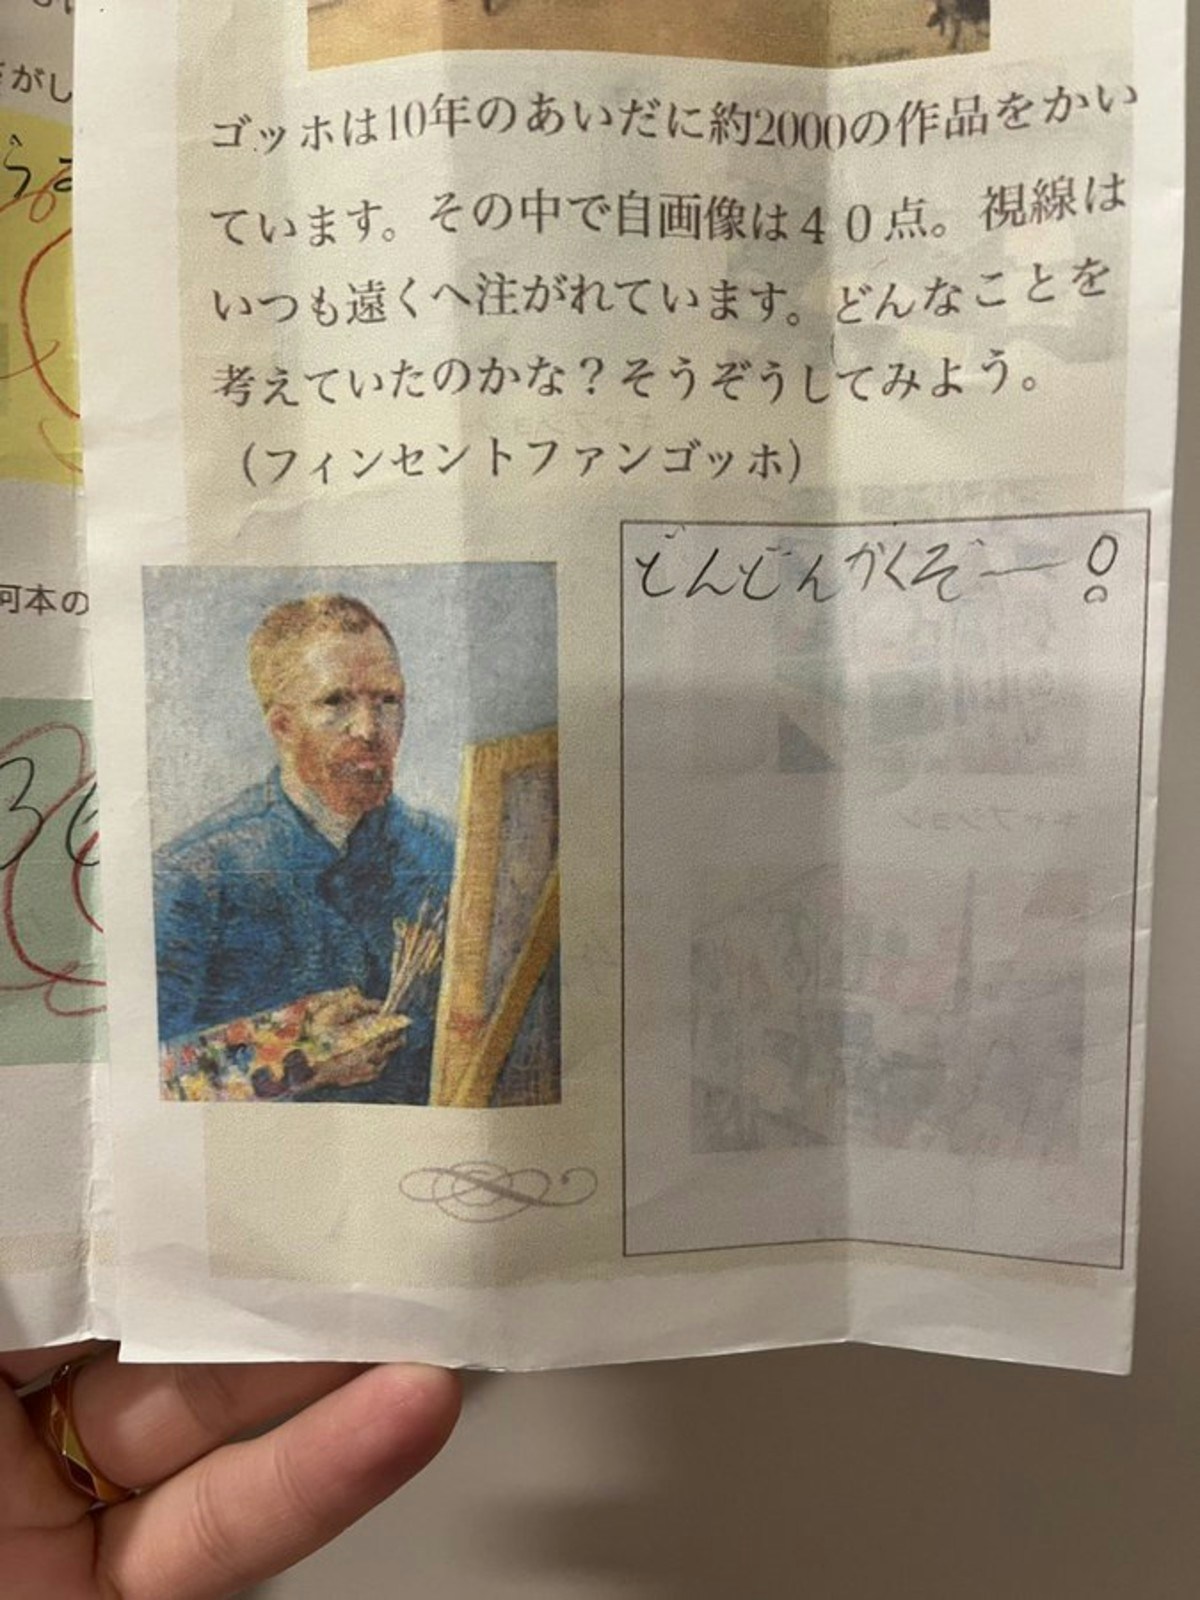 がし
ゴッホは10年のあいだに約2000の作品をかい
ています。その中で自画像は４０点。視線は
いつも遠くへ注がれています。どんなことを
考えていたのかな？そうぞうしてみよう。
（フィンセントファンゴッホ）
どんどんかくぞー！
河本の
キャプション
キャプション